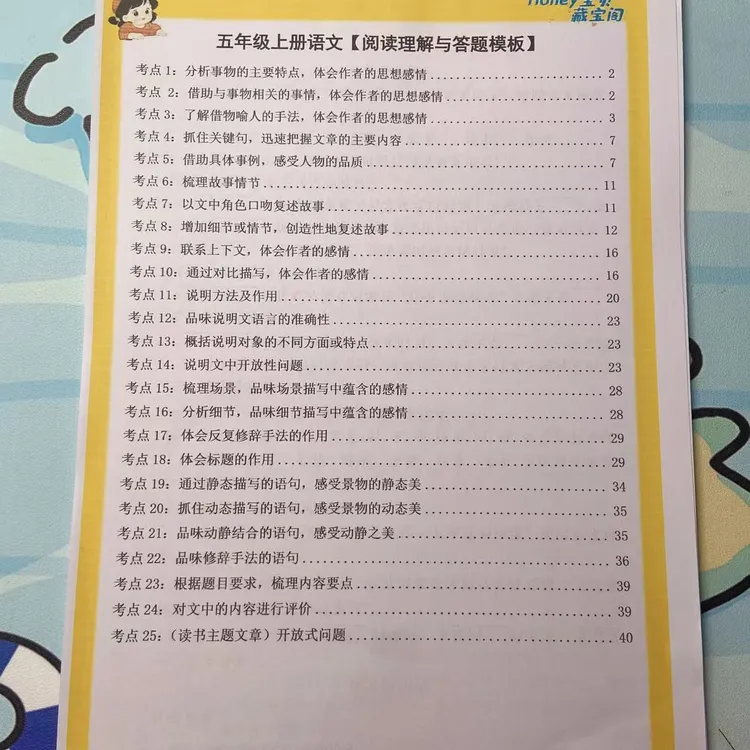 藏宝阁
五年级上册语文【阅读理解与答题模板】
考点 1：分析事物的主要特点，体会作者的思想感情 2
考点 2：借助与事物相关的事情，体会作者的思想感情 2
考点 3：了解借物喻人的手法，体会作者的思想感情 3
考点 4：抓住关键句，迅速把握文章的主要内容 7
考点 5：借助具体事例，感受人物的品质 7
考点 6：梳理故事情节 11
考点 7：以文中角色口吻复述故事 11
考点 8：增加细节或情节，创造性地复述故事 12
考点 9：联系上下文，体会作者的感情 16
考点 10：通过对比描写，体会作者的感情 16
考点 11：说明方法及作用 20
考点 12：品味说明文语言的准确性 23
考点 13：概括说明对象的不同方面或特点 23
考点 14：说明文中开放性问题 23
考点 15：梳理场景，品味场景描写中蕴含的感情 28
考点 16：分析细节，品味细节描写中蕴含的感情 28
考点 17：体会反复修辞手法的作用 29
考点 18：体会标题的作用 29
考点 19：通过静态描写的语句，感受景物的静态美 34
考点 20：抓住动态描写的语句，感受景物的动态美 35
考点 21：品味动静结合的语句，感受动静之美 35
考点 22：品味修辞手法的语句 36
考点 23：根据题目要求，梳理内容要点 39
考点 24：对文中的内容进行评价 39
考点 25：（读书主题文章）开放式问题 40